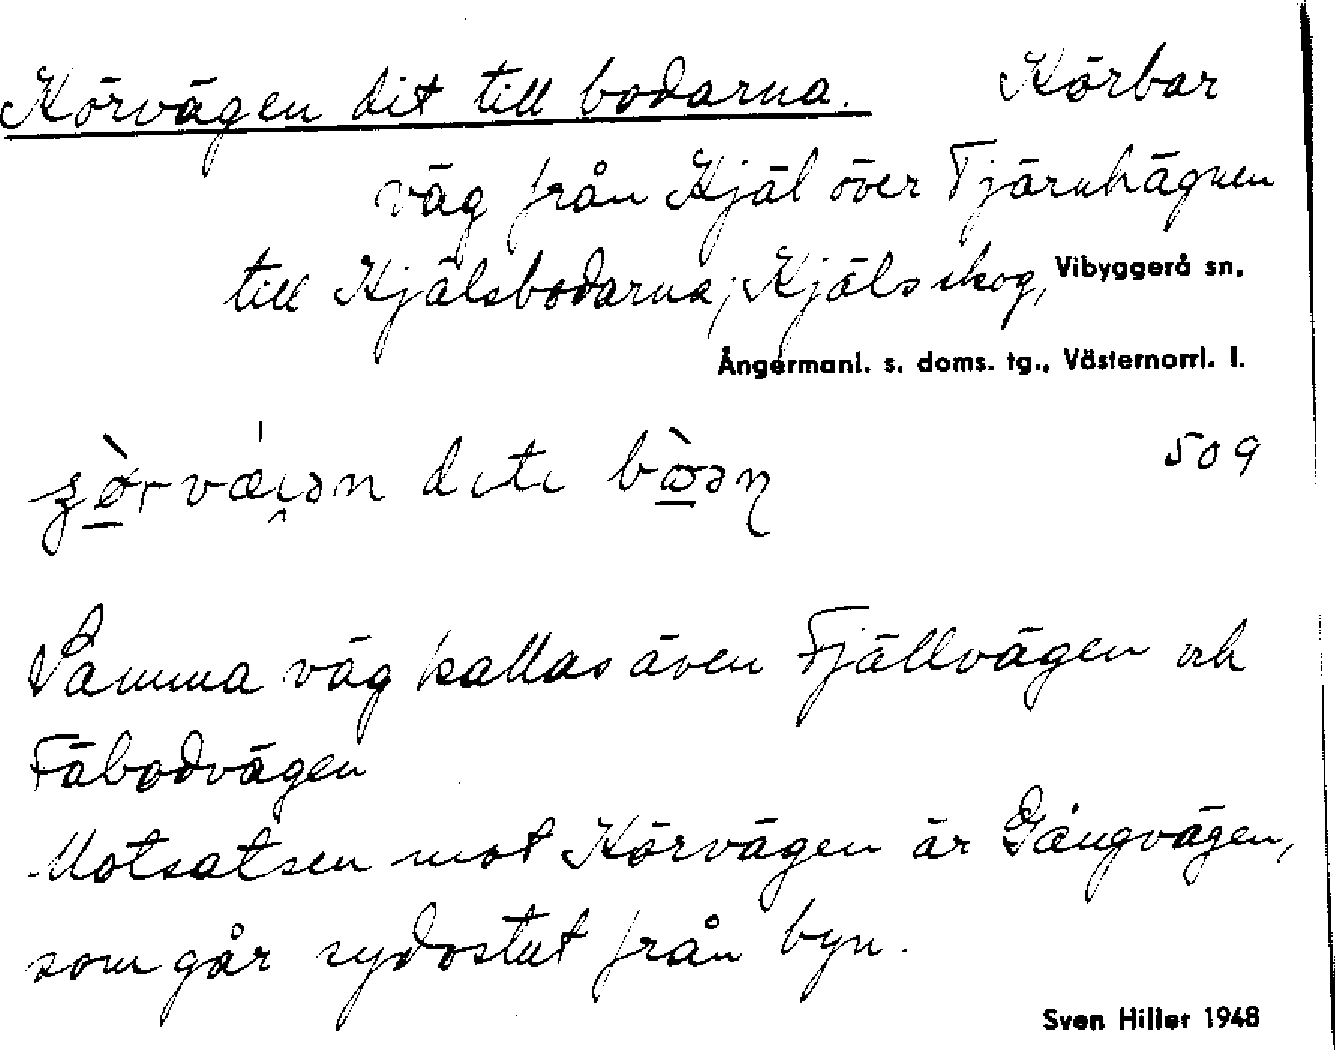 Körvägen dit till bodarna. Körbar
väg från Kjäl över Tjärnhägnen
till Kjälsbodarna; Kjäls skog, Vibyggerå sn.
Ångermanl. s. doms. tg., Västernorrl. l.
509
Samma väg kallas även Fjällvägen och
Fäbodvägen
Motsatsen mot Körvägen är Gångvägen,
som går sydostut från byn.
Sven Hiller 1948